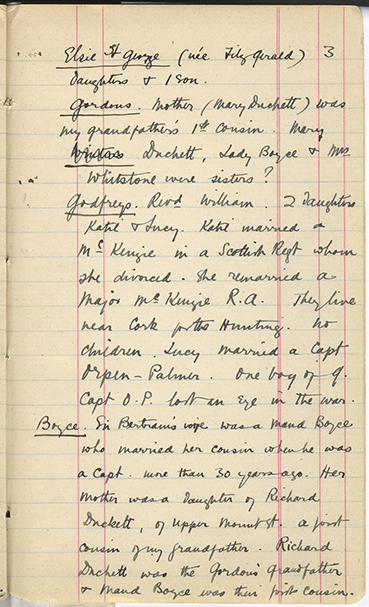 Elsie St George (née FitzGerald) 3
Daughters & 1 son.
Gordons. Mother (Mary Duckett) was
my grandfather's 1st cousin. Mary
Duckett, Lady Boyce & Mrs
Whitstone were sisters?
Godfreys. Revd William. 2 Daughters
Katie & Lucy. Katie married a
McKenzie in a Scottish Regt whom
she divorced. She remarried a
Major McKenzie R.A. They live
near Cork for the Hunting. No
children. Lucy married a Capt
Orpen-Palmer. One boy of 9.
Capt O.P. lost an Eye in the war.
Boyce. Sir Bertram's wife was a Maud Boyce
who married her cousin when he was
a Capt. more than 30 years ago. Her
Mother was a Daughter of Richard
Duckett, of Upper Mount St. a first
cousin of my grandfather. Richard
Duckett was the Gordons' Grandfather
& Maud Boyce was their first cousin.